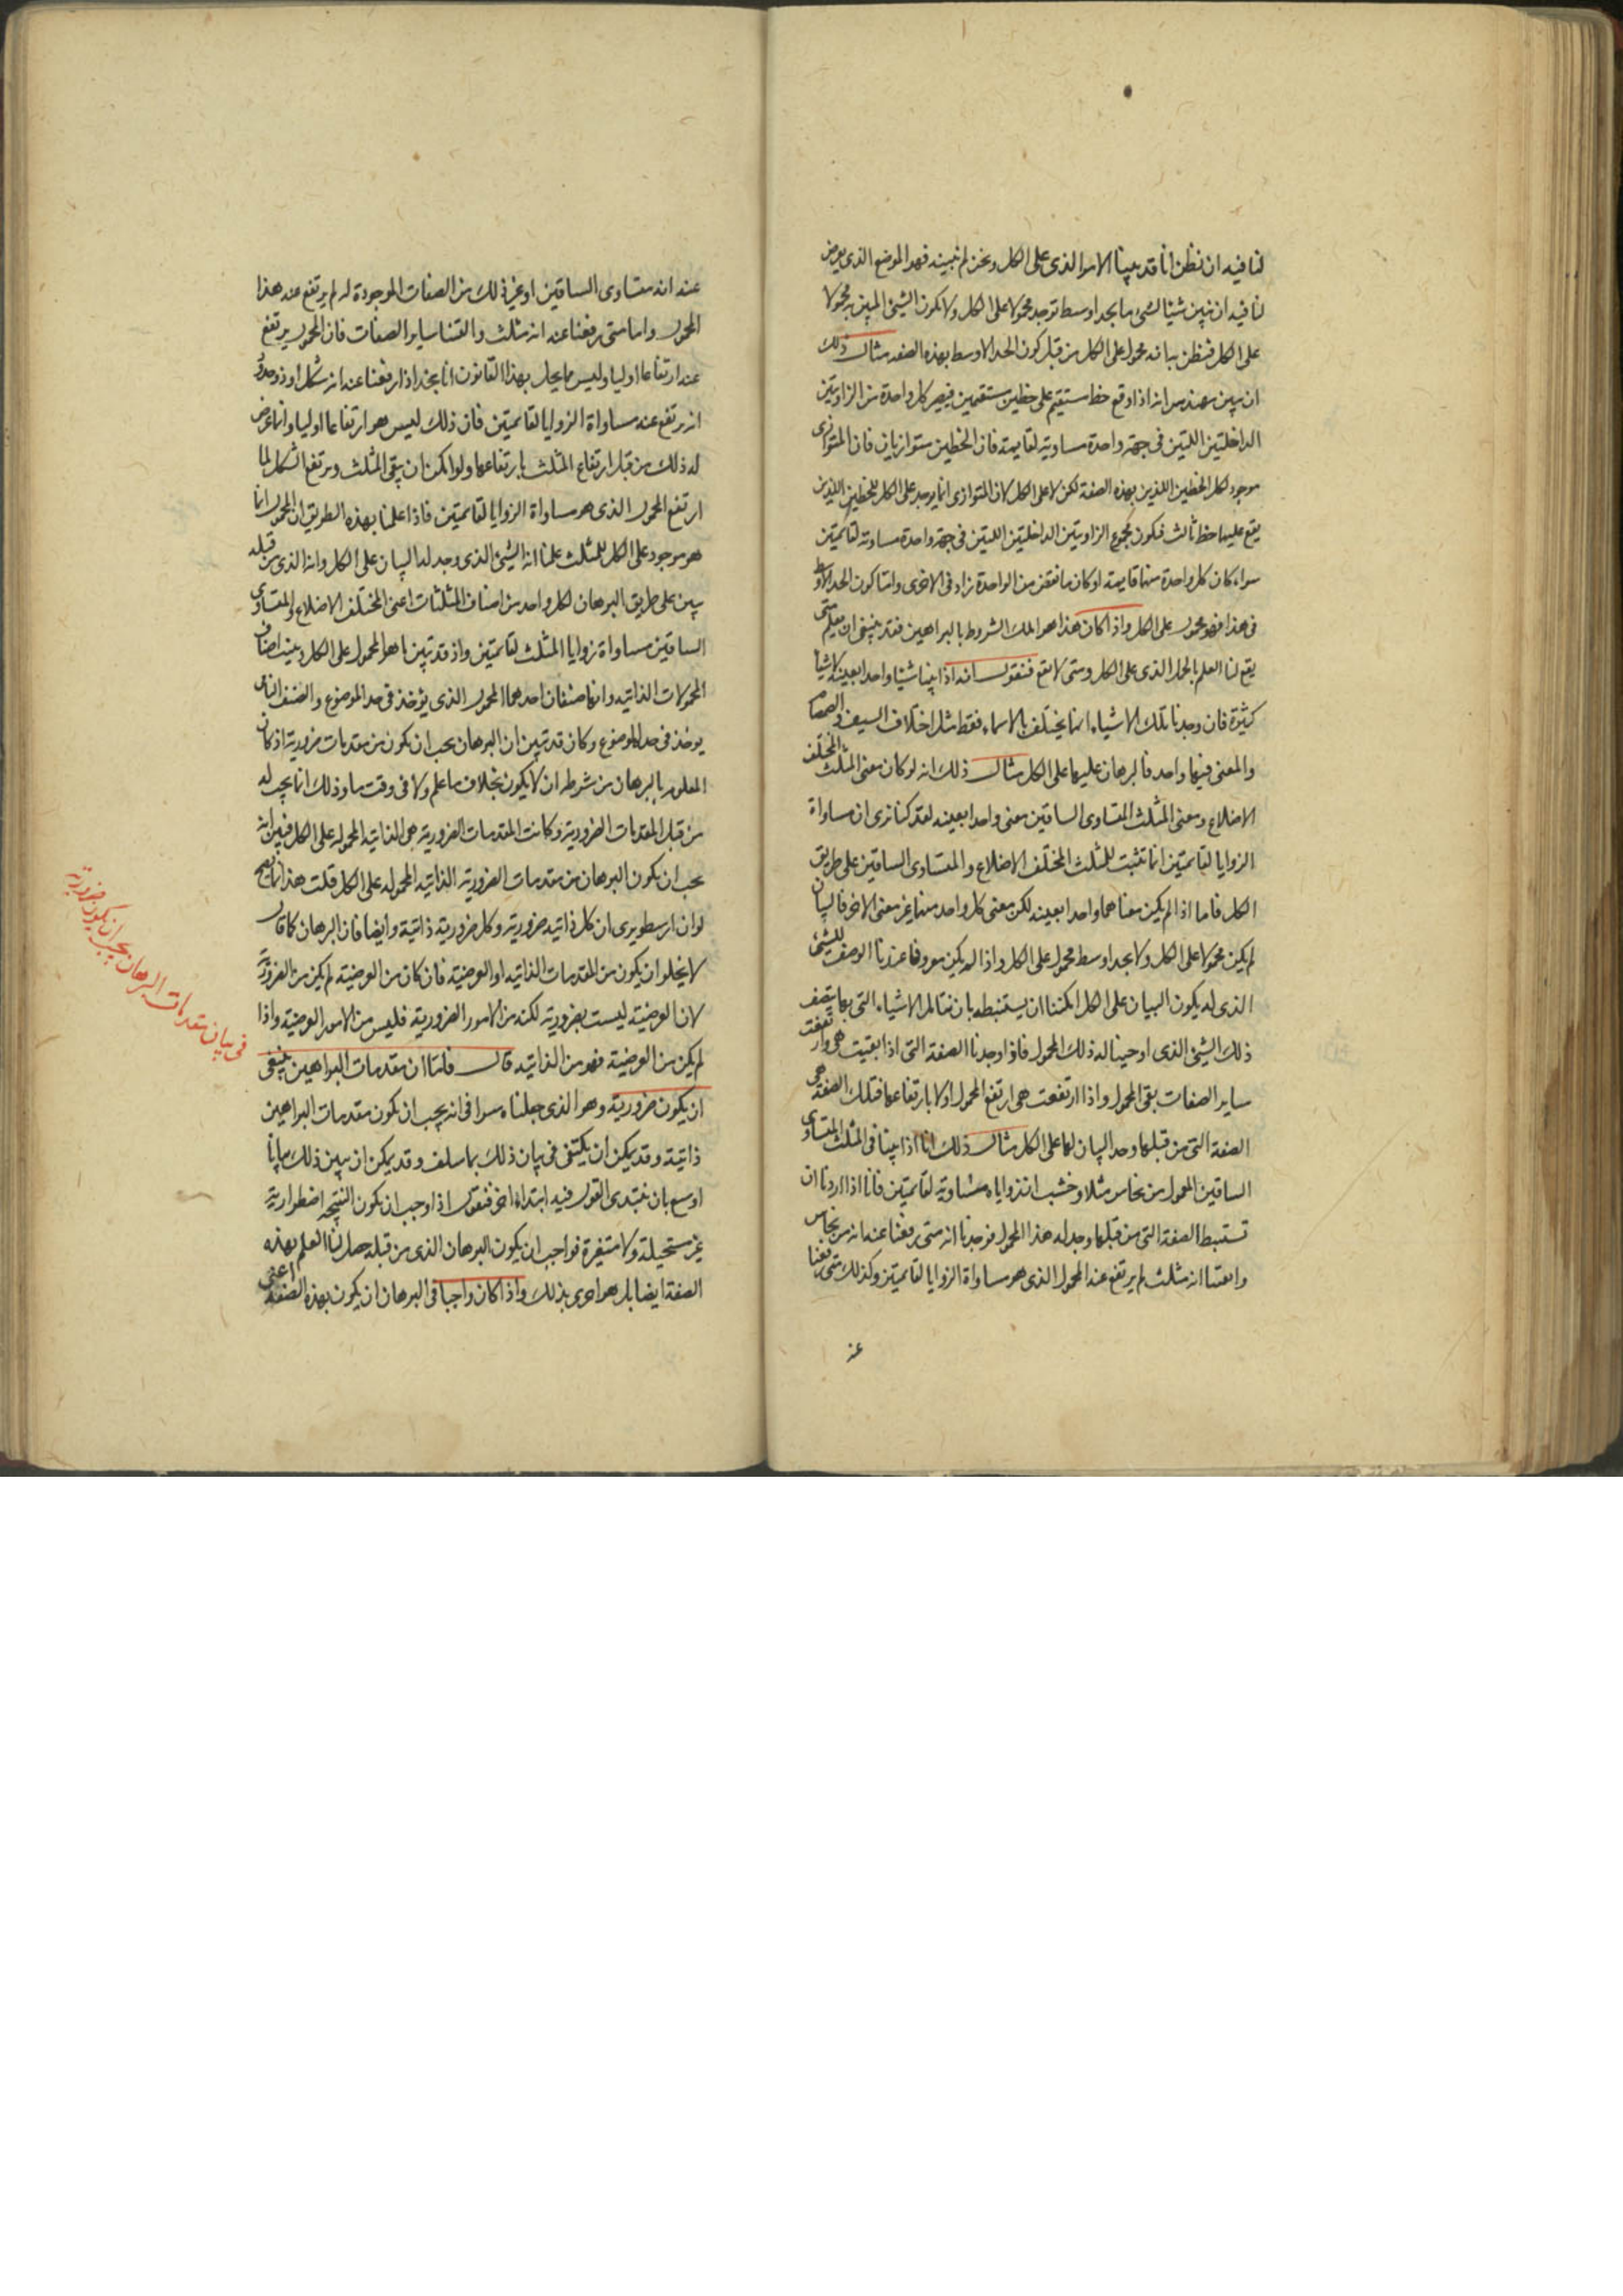 لنا فيه ان نظن انا قد بينا الامر الذى على الكل ونحن لم نبينه فهو الموضع الذى يعرض
لنا فيه ان نبين شيئا لشئ ما بحد اوسط توجد محمولا على الكل ولا يكون الشئ المبين به محمولا
على الكل فنظن به انه محمول على الكل من قبل كون الحد الاوسط بهذه الصفه مثال ذلك
ان يبين مهندس انه اذا وقع خط مستقيم على خطين مستقيمين فيصير كل واحدة من الزاويتين
الداخلتين اللتين فى جهة واحدة مساوية لقايمة فان الخطين متوازيان فان المتوازى
موجود لكل الخطين اللذين بهذه الصفة لكن لا على الكل لان المتوازى انما يوجد على الكل للخطين اللذين
يقع عليهما خط ثالث فيكون مجموع الزاويتين الداخلتين اللتين فى جهة واحدة مساوية لقائمتين
سواء كان كل واحدة منهما قايمة او كان ما نقص من الواحدة زاد فى الاخرى واما كون الحد الاوسط
فى هذا فهو محمول على الكل واذا كان هذا هو الملك الشروط بالبراهين فقد ينبغى ان نعلم متى
يقع لنا العلم بالحمل الذى على الكل ومتى لا يقع فنقول انه اذا بينا شيئا واحدا بعينه لاشيا
كثيرة فان وجدنا تلك الاشياء انما يختلف بالاسماء فقط مثل اختلاف السيف والصمصام
والمعنى فيهما واحد فالبرهان عليهما على الكل مثال ذلك انه لو كان معنى المثلث المختلف
الاضلاع ومعنى المثلث المتساوى الساقين معنى واحدا بعينه لقد كنا نرى ان مساواة
الزوايا لقائمتين انما تثبت للمثلث المختلف الاضلاع والمتساوى الساقين على طريق
الكل فاما اذا لم يكن معناهما واحدا بعينه لكن معنى كل واحد منهما غير معنى الاخر فالبيان
لم يكن محمولا على الكل ولا بحد اوسط محمول على الكل واذا لم يكن معروفا عندنا الوصف للشئ
الذى له يكون البيان على الكل امكننا ان يستنبطه بان نتامل الاشياء التى بها يتصف
ذلك الشئ الذى اوجبنا له ذلك المحمول فاذا وجدنا الصفة التى اذا بقيت هى وارتفعت
ساير الصفات بقى المحمول واذا ارتفعت هى ارتفع المحمول اولا بارتفاعها فتلك الصفة هى
الصفة التى من قبلها وجد البيان لها على الكل مثال ذلك انا اذا بينا فى المثلث المتساوى
الساقين المعمول من نحاس مثلا وخشب ان زواياه متساوية لقائمتين فانا اذا اردنا ان
نستنبط الصفة التى من قبلها وجد له هذا المحمول فوجدنا انه متى رفعنا عنه انه من نحاس
وابقينا انه مثلث لم يرتفع عنه المحمول الذى هو مساواة الزوايا لقائمتين وكذلك متى رفعنا
عنه
عنه انه متساوى الساقين او غير ذلك من الصفات الموجودة له لم يرتفع عنه هذا
المحمول واما متى رفعنا عنه انه مثلث وابقينا ساير الصفات فان المحمول يرتفع
عند ارتفاعها اوليا وليس مما يحل بهذا القانون انا نجد اذا رفعنا عنه انه شكل او ذو حدود
انه يرتفع عنه مساواة الزوايا لقائمتين فان ذلك ليس هو ارتفاعا اوليا وانما عرض
له ذلك من قبل ارتفاع المثلث بارتفاعهما ولو امكن ان يبقى المثلث ويرتفع الشكل لما
ارتفع المحمول الذى هو مساواة الزوايا لقائمتين فاذا علمنا بهذه الطريق ان المحمول انما
هو موجود على الكل للمثلث علمنا انه الشئ الذى وجد له البيان على الكل وانه الذى من قبله
يبين على طريق البرهان لكل واحد من اصناف المثلثات اعنى المختلف الاضلاع والمتساوى
الساقين مساواة زوايا المثلث لقائمتين واذ قد تبين ما هو المحمول على الكل وبينت اصناف
المحمولات الذاتيه وانها صنفان احدهما المحمول الذى يؤخذ فى حد الموضوع والصنف الثانى
يوخذ فى حده الموضوع وكان قد تبين ان البرهان يجب ان يكون من مقدمات ضرورية اذ كان
المعلوم بالبرهان من شرطه ان لا يكون بخلاف ما علم ولا فى وقت ما وذلك انما يجب له
من قبل المقدمات الضرورية وكانت المقدمات الضرورية هى الذاتيه المحموله على الكل فبين انه
يجب ان يكون البرهان من مقدمات الضرورية الذاتيه المحموله على الكل قلت هذا انما يصح
لو ان ارسطو يرى ان كل ذاتيه ضرورية وكل ضرورية ذاتية وايضا فان البرهان كما قال
لا يخلو ان يكون من المقدمات الذاتيه او العرضيه فان كان من العرضيه لم يكن من الضرورية
لان العرضية ليست بضرورية لكنه من الامور الضرورية فليس من الامور العرضية واذا
لم يكن من العرضية فهو من الذاتيه قال فاما ان مقدمات البراهين ينبغى
ان يكون ضرورية وهو الذى جعلناه سرا فى انه يجب ان يكون مقدمات البراهين
ذاتية وقد يمكن ان يكتفى فى بيان ذلك بما سلف وقد يمكن ان يبين ذلك بيانا
اوسع بان نبتدى القول فيه ابتداء اخر فنقول اذا وجب ان يكون النتيجه اضطرارية
غير مستحيلة ولا متغيرة فواجب ان يكون البرهان الذى من قبله حصل لنا العلم بهذه
الصفة ايضا بل هو احرى بذلك واذا كان واجبا فى البرهان ان يكون بهذه الصفة اعنى
فى بيان مقدمات البرهان يجب ان يكون ضرورية